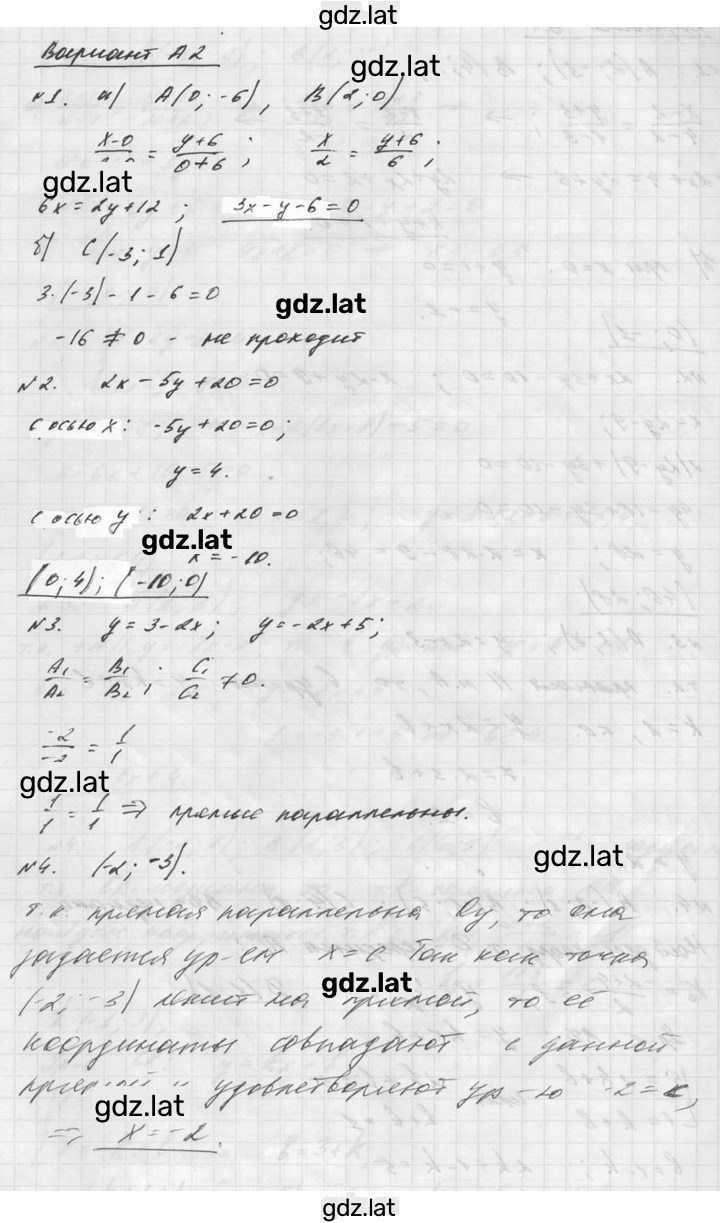 gdz.lat
Вариант А2
gdz.lat
№1. а) A(0; -6), B(2; 0)
x-0 / = y+6 / 0+6 ; x/2 = y+6 / 6 ;
gdz.lat
6x = 2y+12 ; 3x-y-6=0
б) C(-3; 1)
3·(-3) - 1 - 6 = 0
gdz.lat
-16 ≠ 0 - не проходит
№2. 2x-5y+20=0
С осью x: -5y+20=0;
y=4.
С осью y: 2x+20=0
gdz.lat
x = -10.
(0; 4); (-10; 0)
№3. y=3-2x; y=-2x+5;
A₁/A₂ = B₁/B₂ ; C₁/C₂ ≠ 0.
-2/-2 = 1/1
gdz.lat
1/1 = 1/1 ⇒ прямые параллельны.
gdz.lat
№4. (-2; -3).
т.к. прямая параллельна Oy, то она
задается ур-ем x=c Так как точка
gdz.lat
(-2; -3) лежит на прямой, то её
координаты совпадают с данной
прямой и удовлетворяют ур-ю -2=c,
gdz.lat
⇒ x=-2.
gdz.lat